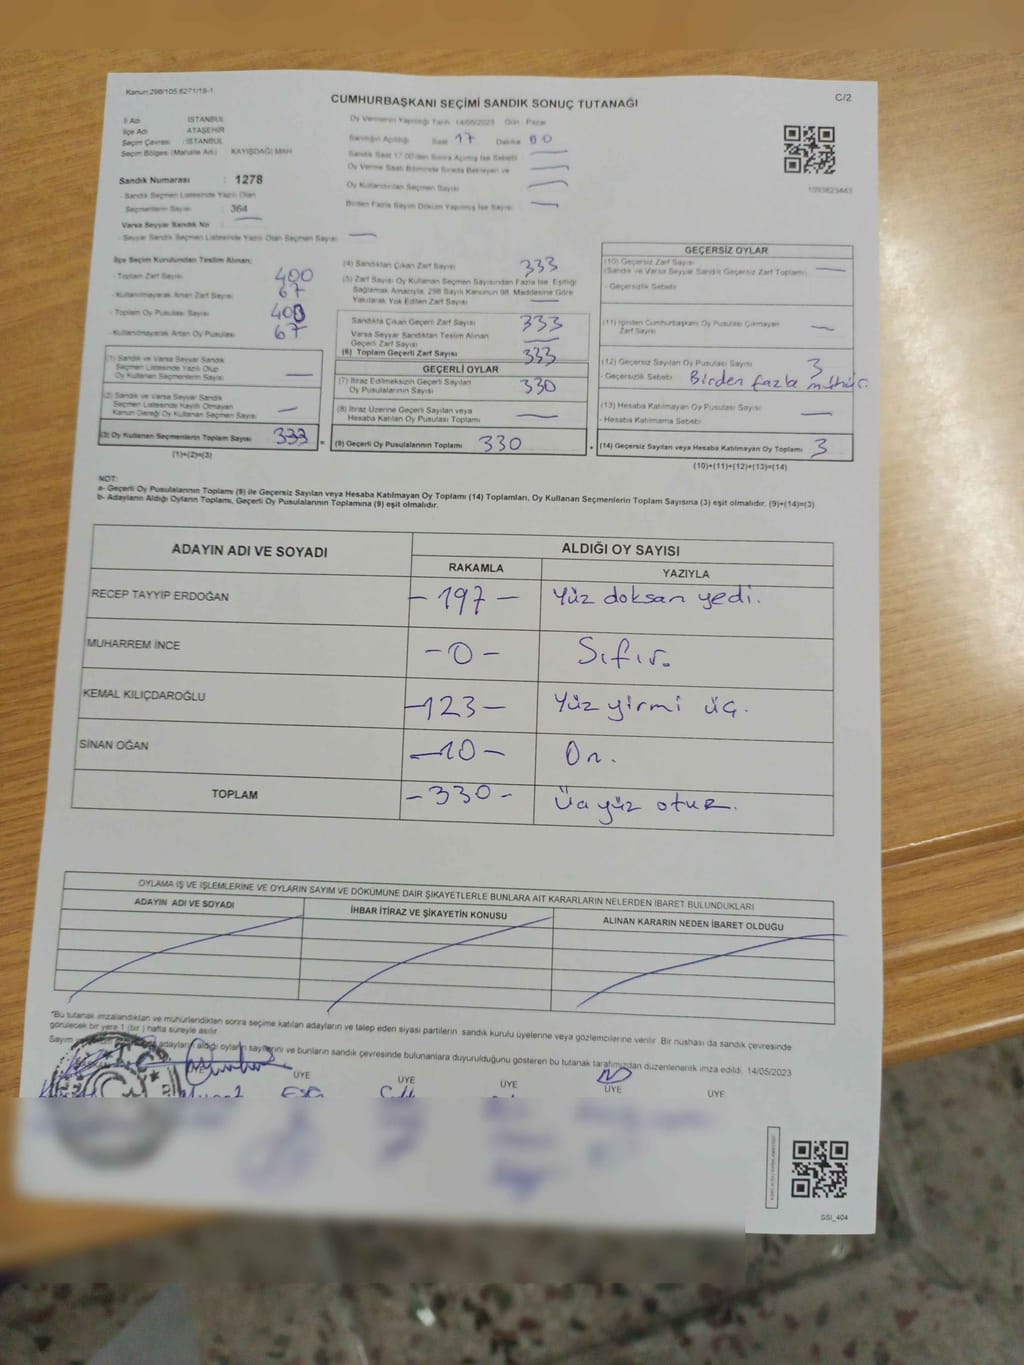 Kanun:298/105.6271/18-1
C/2
CUMHURBAŞKANI SEÇİMİ SANDIK SONUÇ TUTANAĞI
İl Adı : İSTANBUL
İlçe Adı : ATAŞEHİR
Seçim Çevresi : İSTANBUL
Seçim Bölgesi (Mahalle Adı) : KAYIŞDAĞI MAH
Sandık Numarası : 1278
- Sandık Seçmen Listesinde Yazılı Olan
Seçmenlerin Sayısı : 364
Varsa Seyyar Sandık No
- Seyyar Sandık Seçmen Listesinde Yazılı Olan Seçmen Sayısı
Oy Vermenin Yapıldığı Tarih 14/05/2023 Gün : Pazar
Sandığın Açıldığı Saat 17 Dakika 00
Sandık Saat 17.00'den Sonra Açılmış İse Sebebi
Oy Verme Saati Bitiminde Sırada Bekleyen ve
Oy Kullandırılan Seçmen Sayısı
Birden Fazla Sayım Döküm Yapılmış İse Sayısı
1093623443
İlçe Seçim Kurulundan Teslim Alınan;
- Toplam Zarf Sayısı 400
- Kullanılmayarak Artan Zarf Sayısı 67
- Toplam Oy Pusulası Sayısı 400
- Kullanılmayarak Artan Oy Pusulası 67
(1) Sandık ve Varsa Seyyar Sandık
Seçmen Listesinde Yazılı Olup
Oy Kullanan Seçmenlerin Sayısı
(2) Sandık ve Varsa Seyyar Sandık
Seçmen Listesinde Kayıtlı Olmayan
Kanun Gereği Oy Kullanan Seçmen Sayısı
(3) Oy Kullanan Seçmenlerin Toplam Sayısı 333
(1)+(2)=(3)
(4) Sandıktan Çıkan Zarf Sayısı 333
(5) Zarf Sayısı Oy Kullanan Seçmen Sayısından Fazla İse, Eşitliği
Sağlamak Amacıyla, 298 Sayılı Kanunun 98. Maddesine Göre
Yakılarak Yok Edilen Zarf Sayısı
Sandıkta Çıkan Geçerli Zarf Sayısı 333
Varsa Seyyar Sandıktan Teslim Alınan
Geçerli Zarf Sayısı
(6) Toplam Geçerli Zarf Sayısı 333
GEÇERLİ OYLAR
(7) İtiraz Edilmeksizin Geçerli Sayılan
Oy Pusulasının Sayısı 330
(8) İtiraz Üzerine Geçerli Sayılan veya
Hesaba Katılan Oy Pusulası Toplamı
= (9) Geçerli Oy Pusulalarının Toplamı 330
GEÇERSİZ OYLAR
(10) Geçersiz Zarf Sayısı
(Sandık ve Varsa Seyyar Sandık Geçersiz Zarf Toplamı)
- Geçersizlik Sebebi
(11) İçinden Cumhurbaşkanı Oy Pusulası Çıkmayan
Zarf Sayısı
(12) Geçersiz Sayılan Oy Pusulası Sayısı 3
- Geçersizlik Sebebi Birden fazla mühür.
(13) Hesaba Katılmayan Oy Pusulası Sayısı
- Hesaba Katılmama Sebebi
+ (14) Geçersiz Sayılan veya Hesaba Katılmayan Oy Toplamı 3
(10)+(11)+(12)+(13)=(14)
NOT:
a- Geçerli Oy Pusulalarının Toplamı (9) ile Geçersiz Sayılan veya Hesaba Katılmayan Oy Toplamı (14) Toplamları, Oy Kullanan Seçmenlerin Toplam Sayısına (3) eşit olmalıdır. (9)+(14)=(3)
b- Adayların Aldığı Oyların Toplamı, Geçerli Oy Pusulalarının Toplamına (9) eşit olmalıdır.
ADAYIN ADI VE SOYADI
ALDIĞI OY SAYISI
RAKAMLA
YAZIYLA
RECEP TAYYİP ERDOĞAN - 197 - Yüz doksan yedi.
MUHARREM İNCE - 0 - Sıfır.
KEMAL KILIÇDAROĞLU - 123 - Yüz yirmi üç.
SİNAN OĞAN - 10 - On.
TOPLAM - 330 - Üç yüz otuz.
OYLAMA İŞ VE İŞLEMLERİNE VE OYLARIN SAYIM VE DÖKÜMÜNE DAİR ŞİKAYETLERLE BUNLARA AİT KARARLARIN NELERDEN İBARET BULUNDUKLARI
ADAYIN ADI VE SOYADI
İHBAR İTİRAZ VE ŞİKAYETİN KONUSU
ALINAN KARARIN NEDEN İBARET OLDUĞU
*Bu tutanak imzalandıktan ve mühürlendikten sonra seçime katılan adayların ve talep eden siyasi partilerin sandık kurulu üyelerine veya gözlemcilerine verilir. Bir nüshası da sandık çevresinde
görülecek bir yere 1 (bir) hafta süreyle asılır.
Sayım adayların aldığı oyların sayılarını ve bunların sandık çevresinde bulunanlara duyurulduğunu gösteren bu tutanak tarafımızdan düzenlenerek imza edildi. 14/05/2023
ÜYE
ÜYE
ÜYE
ÜYE
ÜYE
ÜYE
SSI_404